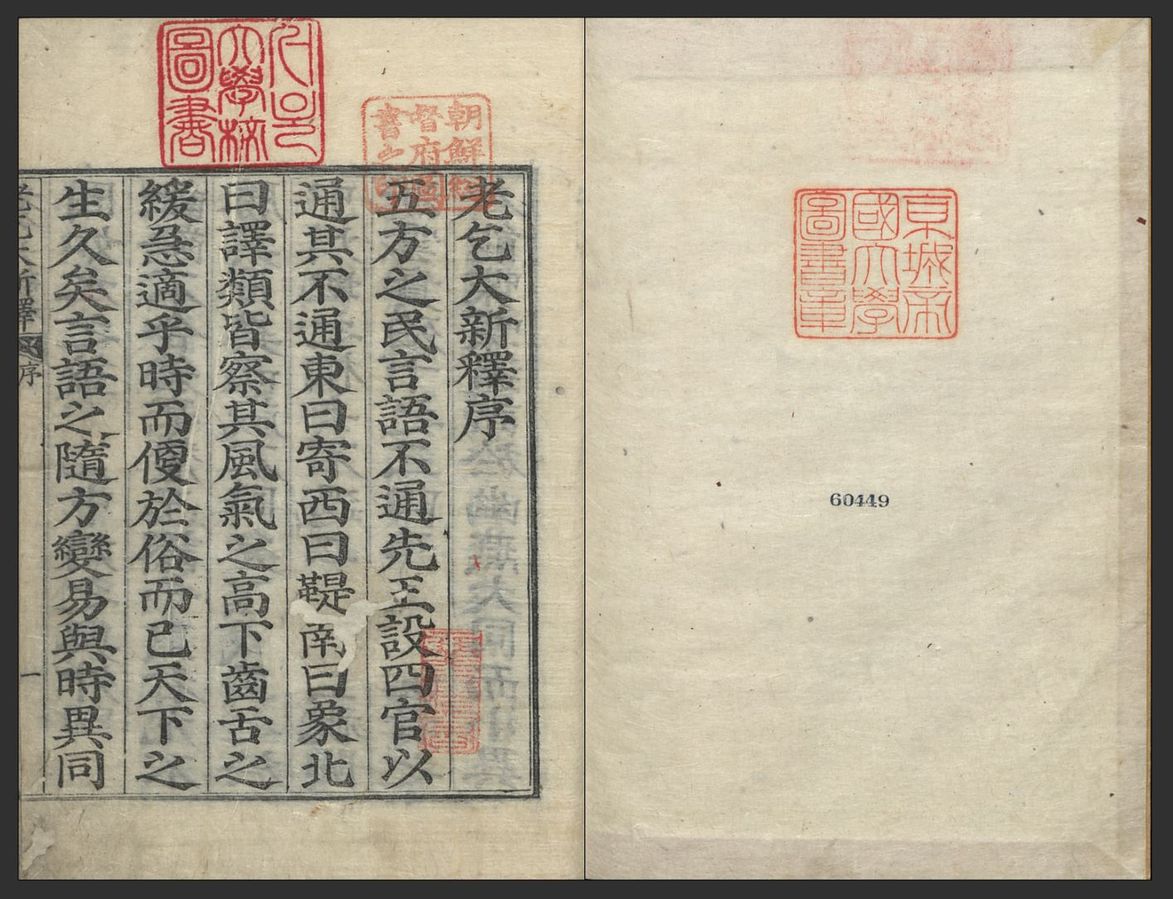 京城帝
國大學
圖書章
60449
서울
大學校
圖書
朝鮮總
督府圖
書之印
老乞大新釋序
五方之民言語不通先王設四官以
通其不通東曰寄西曰鞮南曰象北
曰譯類皆察其風氣之高下齒舌之
緩急適乎時而便於俗而已天下之
生久矣言語之隨方變易與時異同
老乞大新釋 序 一